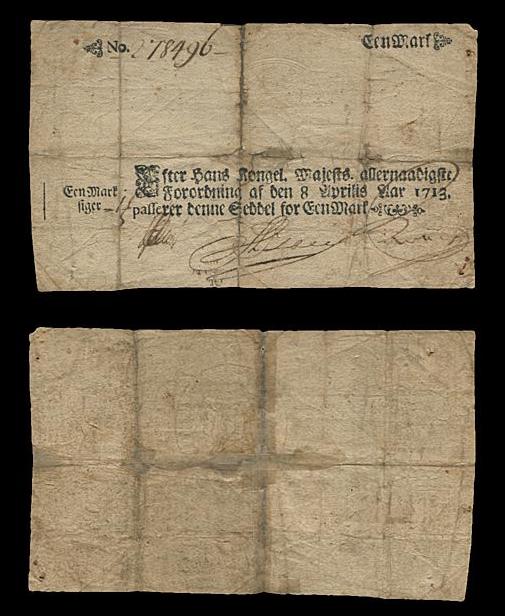 No. 78496
Een Mark
Efter Hans Kongel. Majests. allernaadigste
Forordning af den 8 Aprilis Aar 1713,
passerer denne Seddel for Een Mark
Een Mark
siger